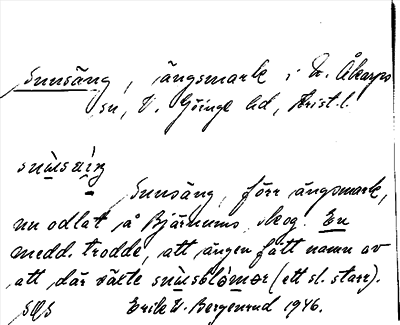 Snusäng, ängsmark i N. Åkarps
sn, V. Göinge hd, Krist. l.
snu̇sæŋ
Snusäng, förr ängsmark,
nu odlat å Bjärnums skog. En
medd. trodde, att ängen fått namn av
att där växte snusblomor (ett sl. starr).
SOS Erik W. Bergenrud 1946.